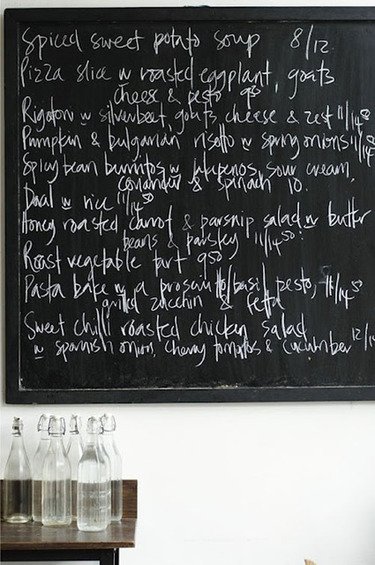 Spiced sweet potato soup 8/12
Pizza slice w roasted eggplant, goats
cheese & pesto 950
Rigatoni w silverbeet, goats cheese & zest 11/1450
Pumpkin & bulgarian risotto w spring onions 11/1450
Spicy bean burritos w jalapenos, sour cream,
coriander & spinach 10.
Daal w rice 11/1450
Honey roasted carrot & parsnip salad w butter
beans & parsley 11/1450.
Roast vegetable tart 950
Pasta bake w a prosciutto/basil pesto, 11/1450
grilled zucchin & fetta
Sweet chilli roasted chicken salad
w spanish onion, cherry tomatoes & cucumber 12/1